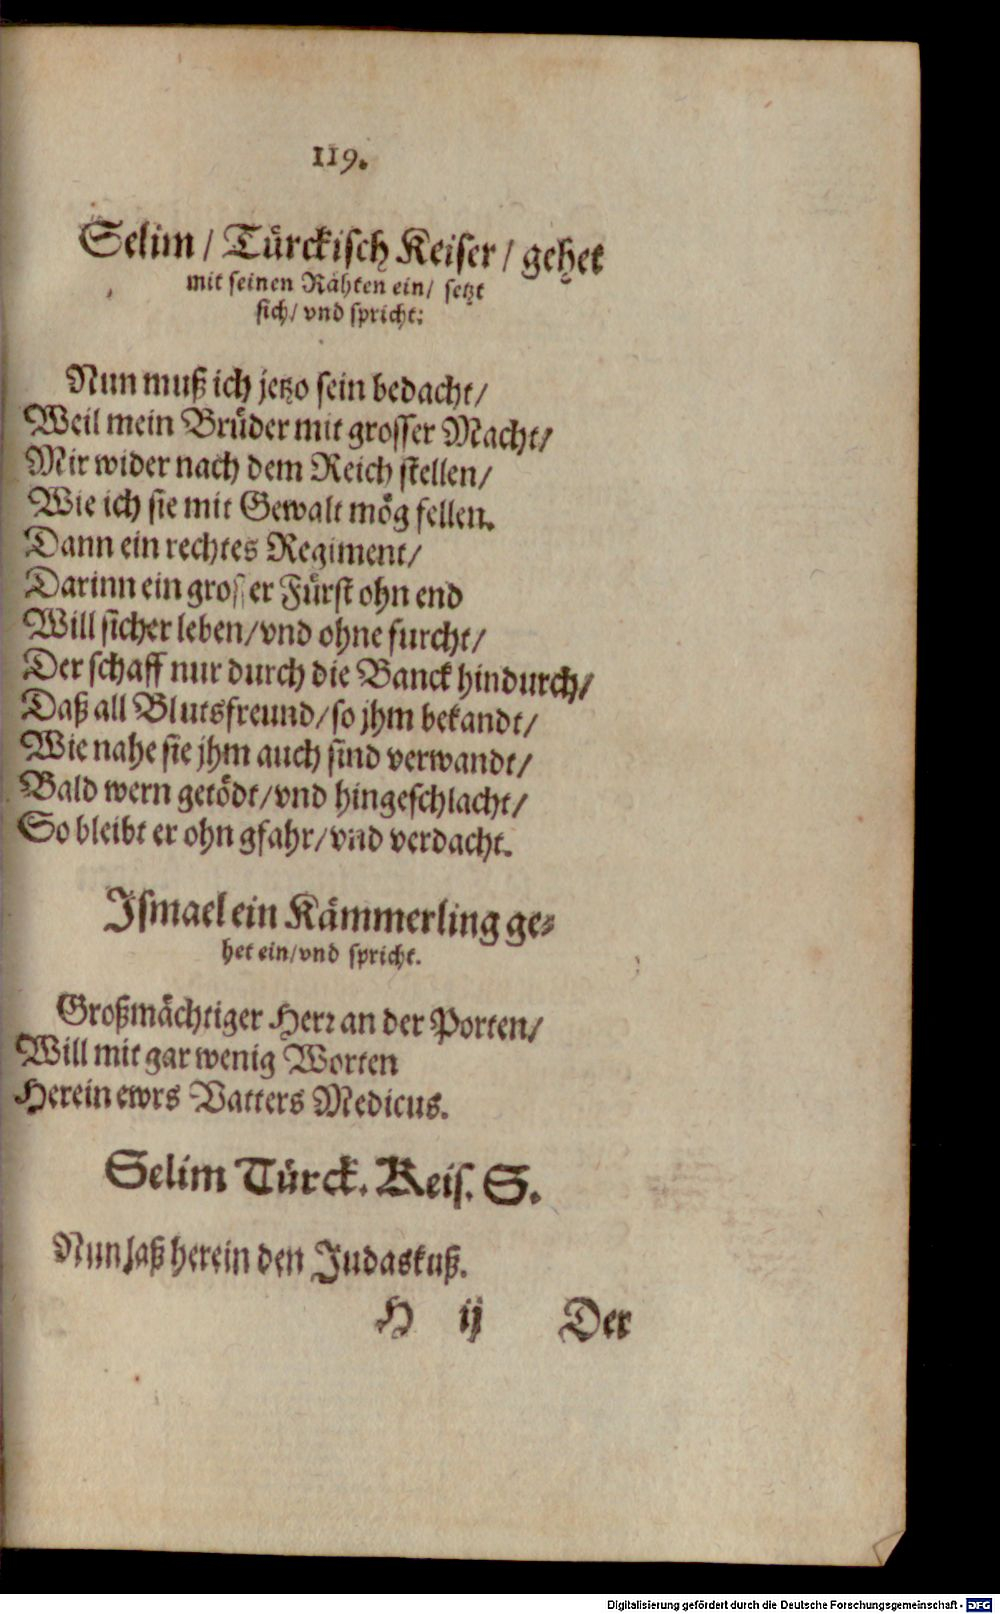 119.
Selim / Türckisch Keiser / gehet
mit seinen Rähten ein / setzt
sich / vnd spricht:
Nun muß ich jetzo sein bedacht /
Weil mein Brüder mit grosser Macht /
Mir wider nach dem Reich stellen /
Wie ich sie mit Gewalt mög fellen.
Dann ein rechtes Regiment /
Darinn ein grosser Fürst ohn end
Will sicher leben / vnd ohne furcht /
Der schaff nur durch die Banck hindurch /
Daß all Blutsfreund / so jhm bekandt /
Wie nahe sie jhm auch sind verwandt /
Bald wern getödt / vnd hingeschlacht /
So bleibt er ohn gfahr / vnd verdacht.
Ismael ein Kämmerling ge-
het ein / vnd spricht.
Großmächtiger Herr an der Porten /
Will mit gar wenig Worten
Herein ewrs Vatters Medicus.
Selim Türck. Keis. S.
Nun laß herein den Judaskuß.
H ij Der
Digitalisierung gefördert durch die Deutsche Forschungsgemeinschaft - DFG